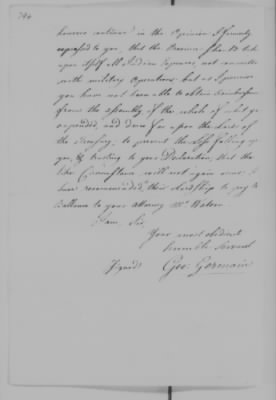 however continue in the Opinion I formerly
expressed to you, that the Province should take
upon itself all Indian Expences, not connected
with military Operations; but as I perceive
you have not been able to obtain reimbursement
from the assembly of the whole of what you
expended, and drew for upon the Lords of
the Treasury, to prevent the Loss falling upon
you, & trusting to your Declaration, that the
like Circumstance will not again occur I
have recommended their Lordships to pay the
Ballance to your attorney Mr
I am, Sir,
Your most obedient
humble Servant
Signed Geo: Germain